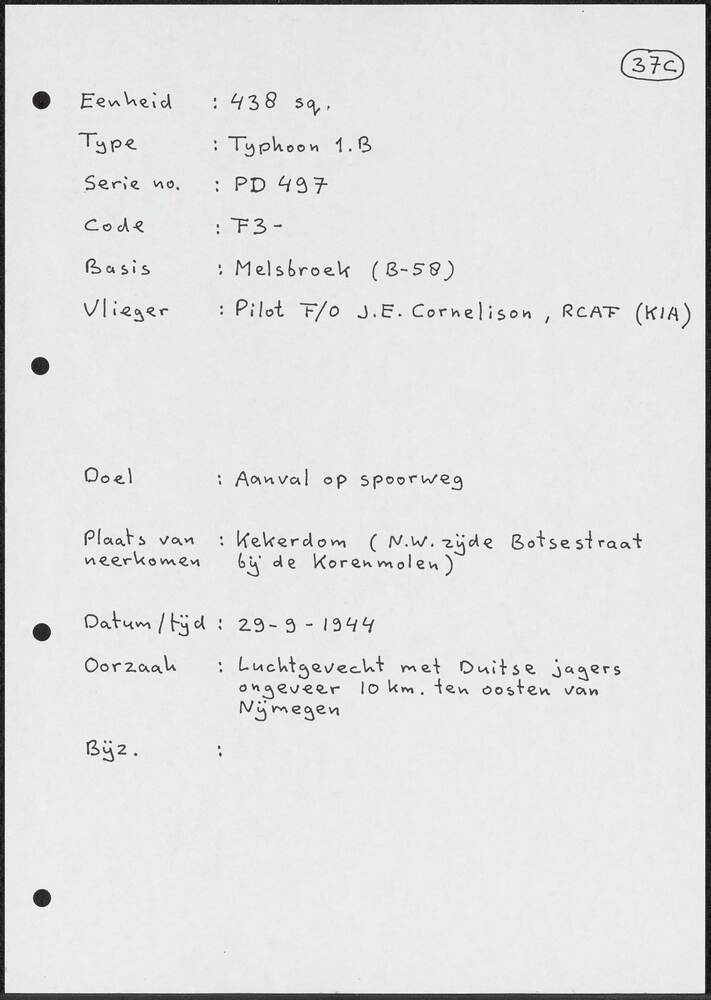 37C
Eenheid : 438 sq.
Type : Typhoon 1.B
Serie no. : PD 497
Code : F3-
Basis : Melsbroek (B-58)
Vlieger : Pilot F/O J.E. Cornelison, RCAF (KIA)
Doel : Aanval op spoorweg
Plaats van : Kekerdom (N.W. zijde Botsestraat
neerkomen bij de Korenmolen)
Datum/tijd : 29-9-1944
Oorzaak : Luchtgevecht met Duitse jagers
ongeveer 10 km. ten oosten van
Nijmegen
Bijz. :